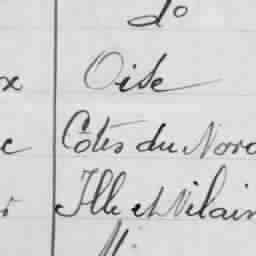 do
x Oise
c Côtes du Nord
r Ille et Vilain